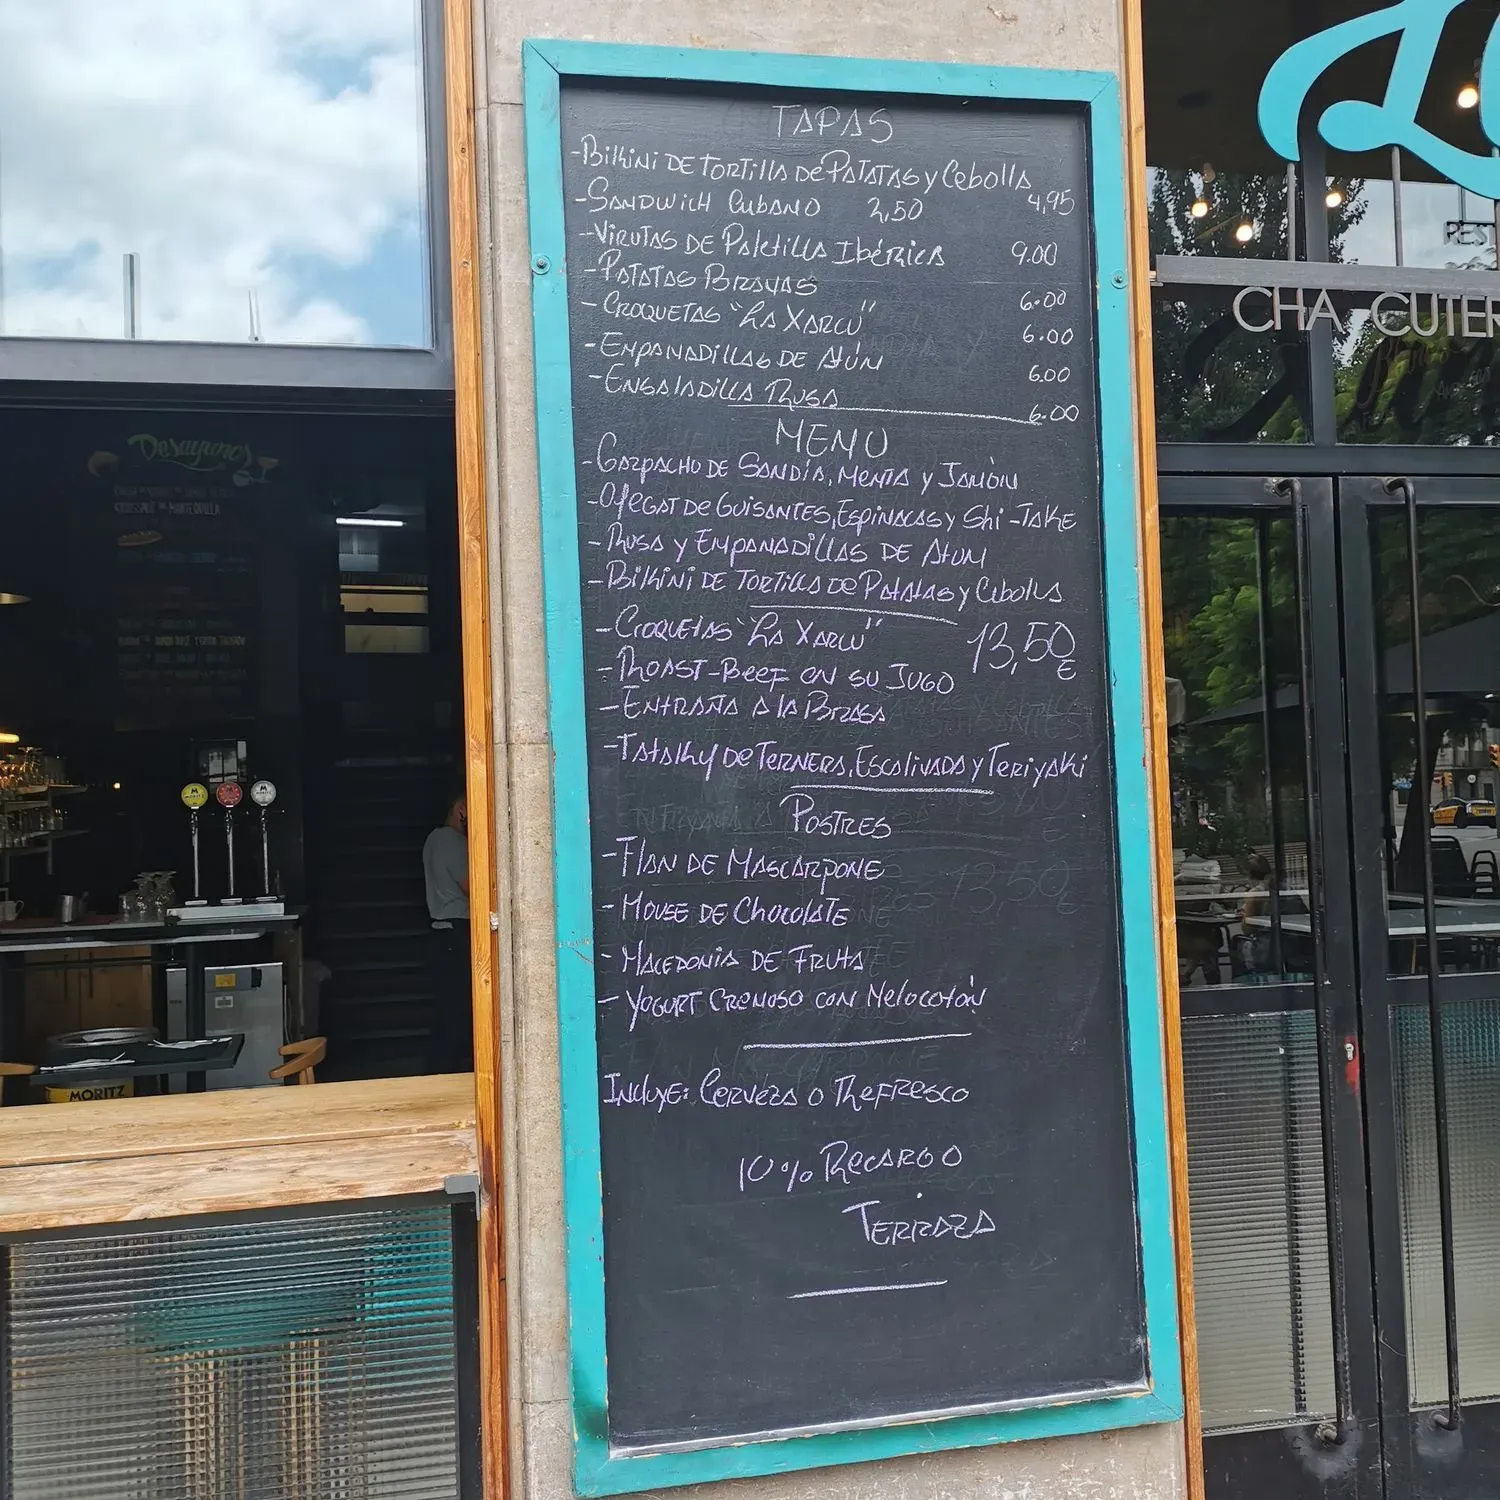 TAPAS
-Bikini DE TORTILLA DE PATATAS y Cebolla 4,95
-SANDWICH CUBANO 2,50
-VIRUTAS DE PALETILLA IBÉRICA 9.00
-PATATAS BRAVAS 6.00
-CROQUETAS "LA XARCU" 6.00
-EMPANADILLAS DE ATÚN 6.00
-ENSALADILLA RUSA 6.00
MENU
-GAZPACHO DE SANDÍA, MENTA y JAMÓN
-OFEGAT DE GUISANTES, ESPINACAS y Shi-TAKE
-RUSA y EMPANADILLAS DE ATUM
-BIKINI DE TORTILLA DE PATATAS y Cebolla
-CROQUETAS "LA XARCU" 13,50 €
-ROAST-BEEF EN SU JUGO
-ENTRAÑA A LA BRASA
-TATAKY DE TERNERA, ESCALIVADA y TERIYAKI
POSTRES
-FLAN DE MASCARPONE
-MOUSE DE CHOCOLATE
-MACEDONIA DE FRUTA
-YOGURT CREMOSO CON MELOCOTÓN
INCLUYE: CERVEZA O REFRESCO
10% RECARGO
TERRAZA
Desayunos
MORITZ
REST
CHA CUTER